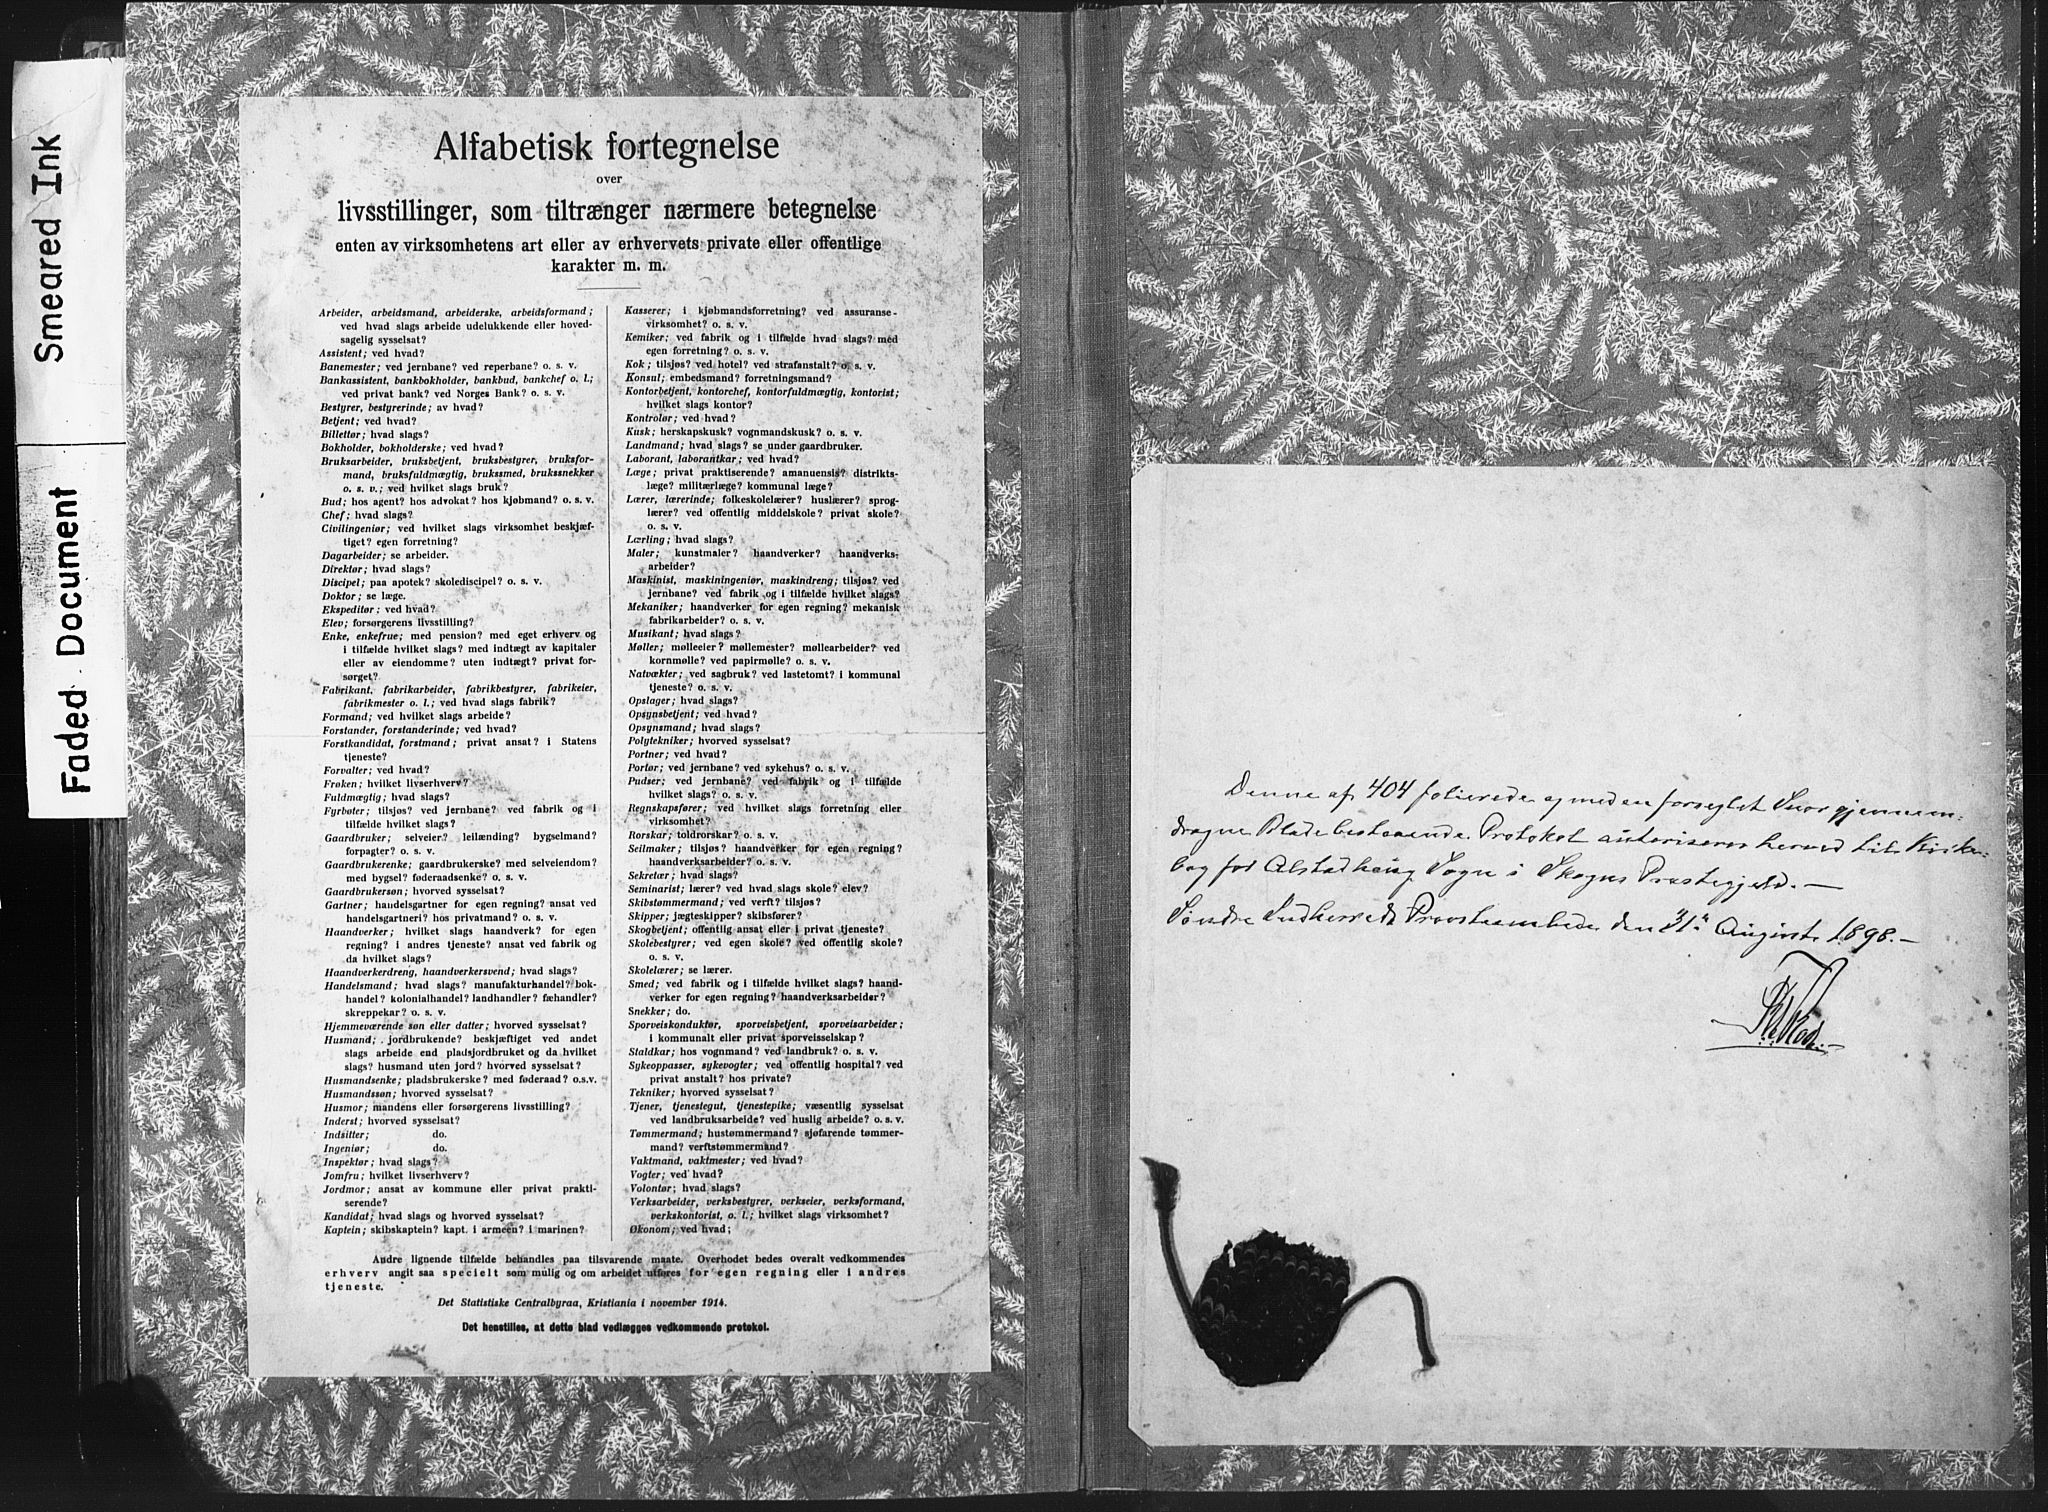 Smeared Ink
Faded Document
Alfabetisk fortegnelse
over
livsstillinger, som tiltrænger nærmere betegnelse
enten av virksomhetens art eller av erhvervets private eller offentlige
karakter m. m.
Arbeider, arbeidsmand, arbeiderske, arbeidsformand;
ved hvad slags arbeide udelukkende eller hoved-
sagelig sysselsat?
Assistent; ved hvad?
Banemester; ved jernbane? ved reperbane? o. s. v.
Bankassistent, bankbokholder, bankbud, bankchef o. l.;
ved privat bank? ved Norges Bank? o. s. v.
Bestyrer, bestyrerinde; av hvad?
Betjent; ved hvad?
Billettør; hvad slags?
Bokholder, bokholderske; ved hvad?
Bruksarbeider, bruksbetjent, bruksbestyrer, bruksfor-
mand, bruksfuldmægtig, brukssmed, brukssnekker
o. s. v.; ved hvilket slags bruk?
Bud; hos agent? hos advokat? hos kjøbmand? o. s. v.
Chef; hvad slags?
Civilingeniør; ved hvilket slags virksomhet beskjæf-
tiget? egen forretning?
Dagarbeider; se arbeider.
Direktør; hvad slags?
Discipel; paa apotek? skolediscipel? o. s. v.
Doktor; se læge.
Ekspeditør; ved hvad?
Elev; forsørgerens livsstilling?
Enke, enkefrue; med pension? med eget erhverv og
i tilfælde hvilket slags? med indtægt av kapitaler
eller av eiendomme? uten indtægt? privat for-
sørget?
Fabrikant, fabrikarbeider, fabrikbestyrer, fabrikeier,
fabrikmester o. l.; ved hvad slags fabrik?
Formand; ved hvilket slags arbeide?
Forstander, forstanderinde; ved hvad?
Forstkandidat, forstmand; privat ansat? i Statens
tjeneste?
Forvalter; ved hvad?
Frøken; hvilket livserhverv?
Fuldmægtig; hvad slags?
Fyrbøter; tilsjøs? ved jernbane? ved fabrik og i
tilfælde hvilket slags?
Gaardbruker; selveier? leilænding? bygselmand?
forpagter? o. s. v.
Gaardbrukerenke; gaardbrukerske? med selveiendom?
med bygsel? føderaadsenke? o. s. v.
Gaardbrukersøn; hvorved sysselsat?
Gartner; handelsgartner for egen regning? ansat ved
handelsgartneri? hos privatmand? o. s. v.
Haandverker; hvilket slags haandverk? for egen
regning? i andres tjeneste? ansat ved fabrik og
da hvilket slags?
Haandverkerdreng, haandverkersvend; hvad slags?
Handelsmand; hvad slags? manufakturhandel? bok-
handel? kolonialhandel? landhandler? fæhandler?
skreppekar? o. s. v.
Hjemmeværende søn eller datter; hvorved sysselsat?
Husmand; jordbrukende? beskjæftiget ved andet
slags arbeide end pladsjordbruket og da hvilket
slags? husmand uten jord? hvorved sysselsat?
Husmandsenke; pladsbrukerske? med føderaad? o.s.v.
Husmandssøn; hvorved sysselsat?
Husmor; mandens eller forsørgerens livsstilling?
Inderst; hvorved sysselsat?
Indsitter; do.
Ingeniør; do.
Inspektør; hvad slags?
Jomfru; hvilket livserhverv?
Jordmor; ansat av kommune eller privat prakti-
serende?
Kandidat; hvad slags og hvorved sysselsat?
Kaptein; skibskaptein? kapt. i armeen? i marinen?
Kasserer; i kjøbmandsforretning? ved assuranse-
virksomhet? o. s. v.
Kemiker; ved fabrik og i tilfælde hvad slags? med
egen forretning? o. s. v.
Kok; tilsjøs? ved hotel? ved strafanstalt? o. s. v.
Konsul; embedsmand? forretningsmand?
Kontorbetjent, kontorchef, kontorfuldmægtig, kontorist;
hvilket slags kontor?
Kontrolør; ved hvad?
Kusk; herskapskusk? vognmandskusk? o. s. v.
Landmand; hvad slags? se under gaardbruker.
Laborant, laborantkar; ved hvad?
Læge; privat praktiserende? amanuensis? distrikts-
læge? militærlæge? kommunal læge?
Lærer, lærerinde; folkeskolelærer? huslærer? sprog-
lærer? ved offentlig middelskole? privat skole?
o. s. v.
Lærling; hvad slags?
Maler; kunstmaler? haandverker? haandverks-
arbeider?
Maskinist, maskiningeniør, maskindreng; tilsjøs? ved
jernbane? ved fabrik og i tilfælde hvilket slags?
Mekaniker; haandverker for egen regning? mekanisk
fabrikarbeider? o. s. v.
Musikant; hvad slags?
Møller; mølleeier? møllemester? møllearbeider? ved
kornmølle? ved papirmølle? o. s. v.
Natvækter; ved sagbruk? ved lastetomt? i kommunal
tjeneste? o. s. v.
Opslager; hvad slags?
Opsynsbetjent; ved hvad?
Opsynsmand; hvad slags?
Polytekniker; hvorved sysselsat?
Portner; ved hvad?
Portør; ved jernbane? ved sykehus? o. s. v.
Pudser; ved jernbane? ved fabrik og i tilfælde
hvilket slags? o. s. v.
Regnskapsfører; ved hvilket slags forretning eller
virksomhet?
Rorskar; toldrorskar? o. s. v.
Seilmaker; tilsjøs? haandverker for egen regning?
haandverksarbeider? o. s. v.
Sekretær; hvad slags?
Seminarist; lærer? ved hvad slags skole? elev?
Skibstømmermand; ved verft? tilsjøs?
Skipper; jægteskipper? skibsfører?
Skogbetjent; offentlig ansat eller i privat tjeneste?
Skolebestyrer; ved egen skole? ved offentlig skole?
o. s. v.
Skolelærer; se lærer.
Smed; ved fabrik og i tilfælde hvilket slags? haand-
verker for egen regning? haandverksarbeider?
Snekker; do.
Sporveiskonduktør, sporveisbetjent, sporveisarbeider;
i kommunalt eller privat sporveisselskap?
Staldkar; hos vognmand? ved landbruk? o. s. v.
Sykeopasser, sykevogter; ved offentlig hospital? ved
privat anstalt? hos private?
Tekniker; hvorved sysselsat?
Tjener, tjenestegut, tjenestepike; væsentlig sysselsat
ved landbruksarbeide? ved huslig arbeide? o. s. v.
Tømmermand; hustømmermand? sjøfarende tømmer-
mand? verftstømmermand?
Vaktmand, vaktmester; ved hvad?
Vogter; ved hvad?
Volontør; hvad slags?
Verksarbeider, verksbestyrer, verkseier, verksformand,
verkskontorist, o. l.; hvilket slags virksomhet?
Økonom; ved hvad;
Andre lignende tilfælde behandles paa tilsvarende maate. Overhodet bedes overalt vedkommendes
erhverv angit saa specielt som mulig og om arbeidet utføres for egen regning eller i andres
tjeneste.
Det Statistiske Centralbyraa, Kristiania i november 1914.
Det henstilles, at dette blad vedlægges vedkommende protokol.
Denne af 404 folierede og med en forseglet Snor gjennem-
dragne Blade bestaaende Protokol autoriseres herved til Kirke-
bog for Alstadhaug Sogn i Skogns Præstegjeld. —
Søndre Indherreds Provsteembede den 31te August 1898. —